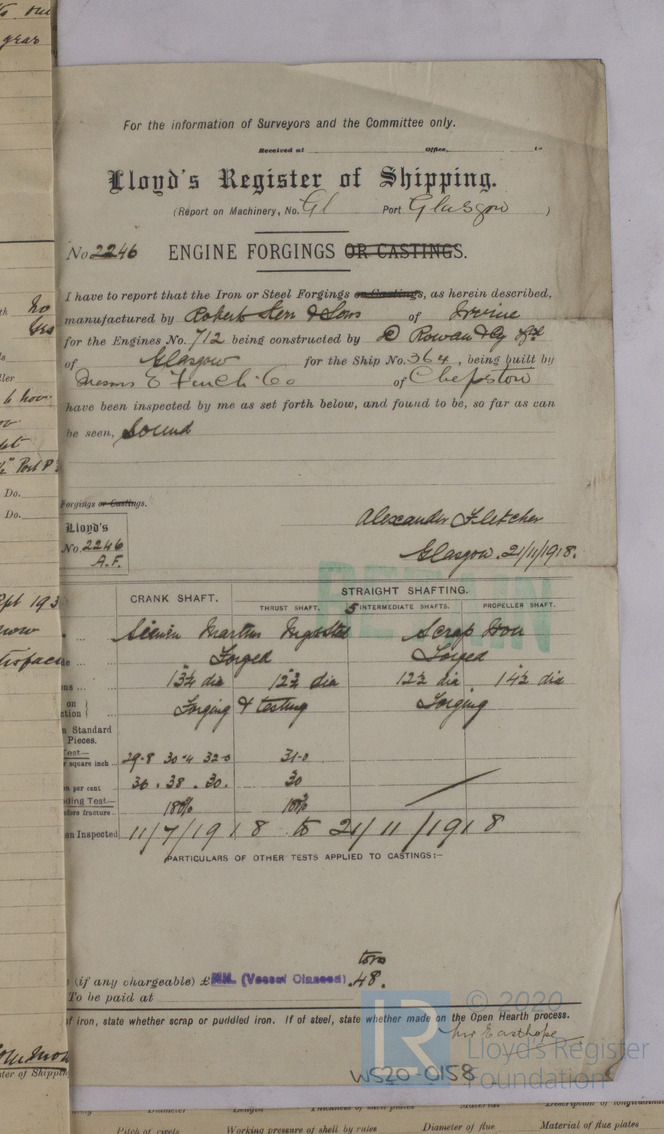 For the information of Surveyors and the Committee only.
Received at Office,
Lloyd's Register of Shipping.
(Report on Machinery, No. Gl Port Glasgow )
No 2246 ENGINE FORGINGS OR CASTINGS.
I have to report that the Iron or Steel Forgings or Castings, as herein described,
manufactured by Robert Kerr & Sons of Irvine
for the Engines No. 712 being constructed by D Rowan & Co Ltd
of Glasgow for the Ship No. 364, being built by
Messrs E Finch & Co of Chepstow
have been inspected by me as set forth below, and found to be, so far as can
be seen, Sound
Forgings or Castings.
Lloyd's
No. 2246
A.F.
Alexander Fletcher
Glasgow. 21/11/1918.
CRANK SHAFT. STRAIGHT SHAFTING.
THRUST SHAFT. 5 INTERMEDIATE SHAFTS. PROPELLER SHAFT.
Siemen Martin Ingot Steel Scrap Iron
Forged Forged
13¼ dia 12¾ dia 12½ dia 14½ dia
Forging & testing Forging
Standard
Pieces.
Test—
square inch 29·8 30·4 32·0 31·0
per cent 36. 38. 30. 30
Test—
before fracture 180% 180%
Inspected 11/7/1918 to 21/11/1918
PARTICULARS OF OTHER TESTS APPLIED TO CASTINGS:—
tons
(if any chargeable) £ (Vessel Classed) 48.
To be paid at
of iron, state whether scrap or puddled iron. If of steel, state whether made on the Open Hearth process.
Mr Easthope
© 2020
LR
Lloyd's Register
Foundation
WS20-0158
Diameter Length Thickness of shell plates Material Description of longitudinal
Pitch of rivets Working pressure of shell by rules Diameter of flue Material of flue plates